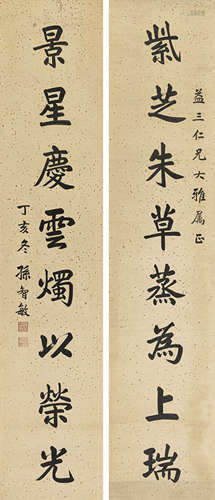 紫芝朱草蒸為上瑞
益三仁兄大雅属正
景星慶雲燭以榮光
丁亥冬 孫智敏